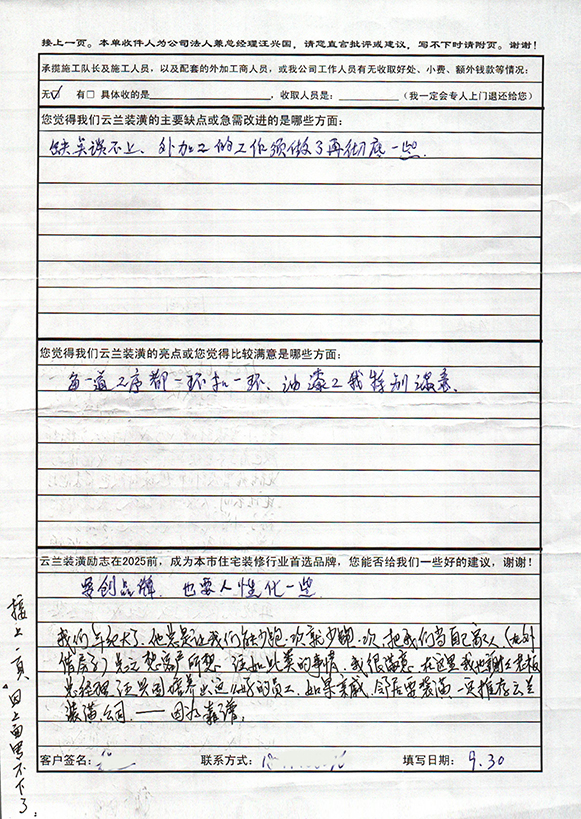 接上一页。本单收件人为公司法人兼总经理汪兴国，请您直言批评或建议，写不下时请附页。谢谢！
承揽施工队长及施工人员，以及配套的外加工商人员，或我公司工作人员有无收取好处、小费、额外钱款等情况：
无☑ 有□ 具体收的是，收取人员是：（我一定会专人上门退还给您）
您觉得我们云兰装潢的主要缺点或急需改进的是哪些方面：
缺点谈不上、外加工的工作须做了再彻底一些.
您觉得我们云兰装潢的亮点或您觉得比较满意是哪些方面：
每一道工序都一环扣一环、油漆工我特别满意、
云兰装潢励志在2025前，成为本市住宅装修行业首选品牌，您能否给我们一些好的建议，谢谢！
要创品牌 也要人性化一些
我们年纪大了，他总是让我们能少跑一次就少跑一次 把我们当自己家人（在外
借房子）总之想客户所想 诸如此类的事情，我很满意 在这里我也谢谢老板
总经理汪兴国培养出这么好的员工，如果亲戚、邻居要装潢一定推荐云兰
装潢公司. ——因为靠谱，
客户签名： 联系方式： 填写日期：9.30
接上一页，因上面写不下了，